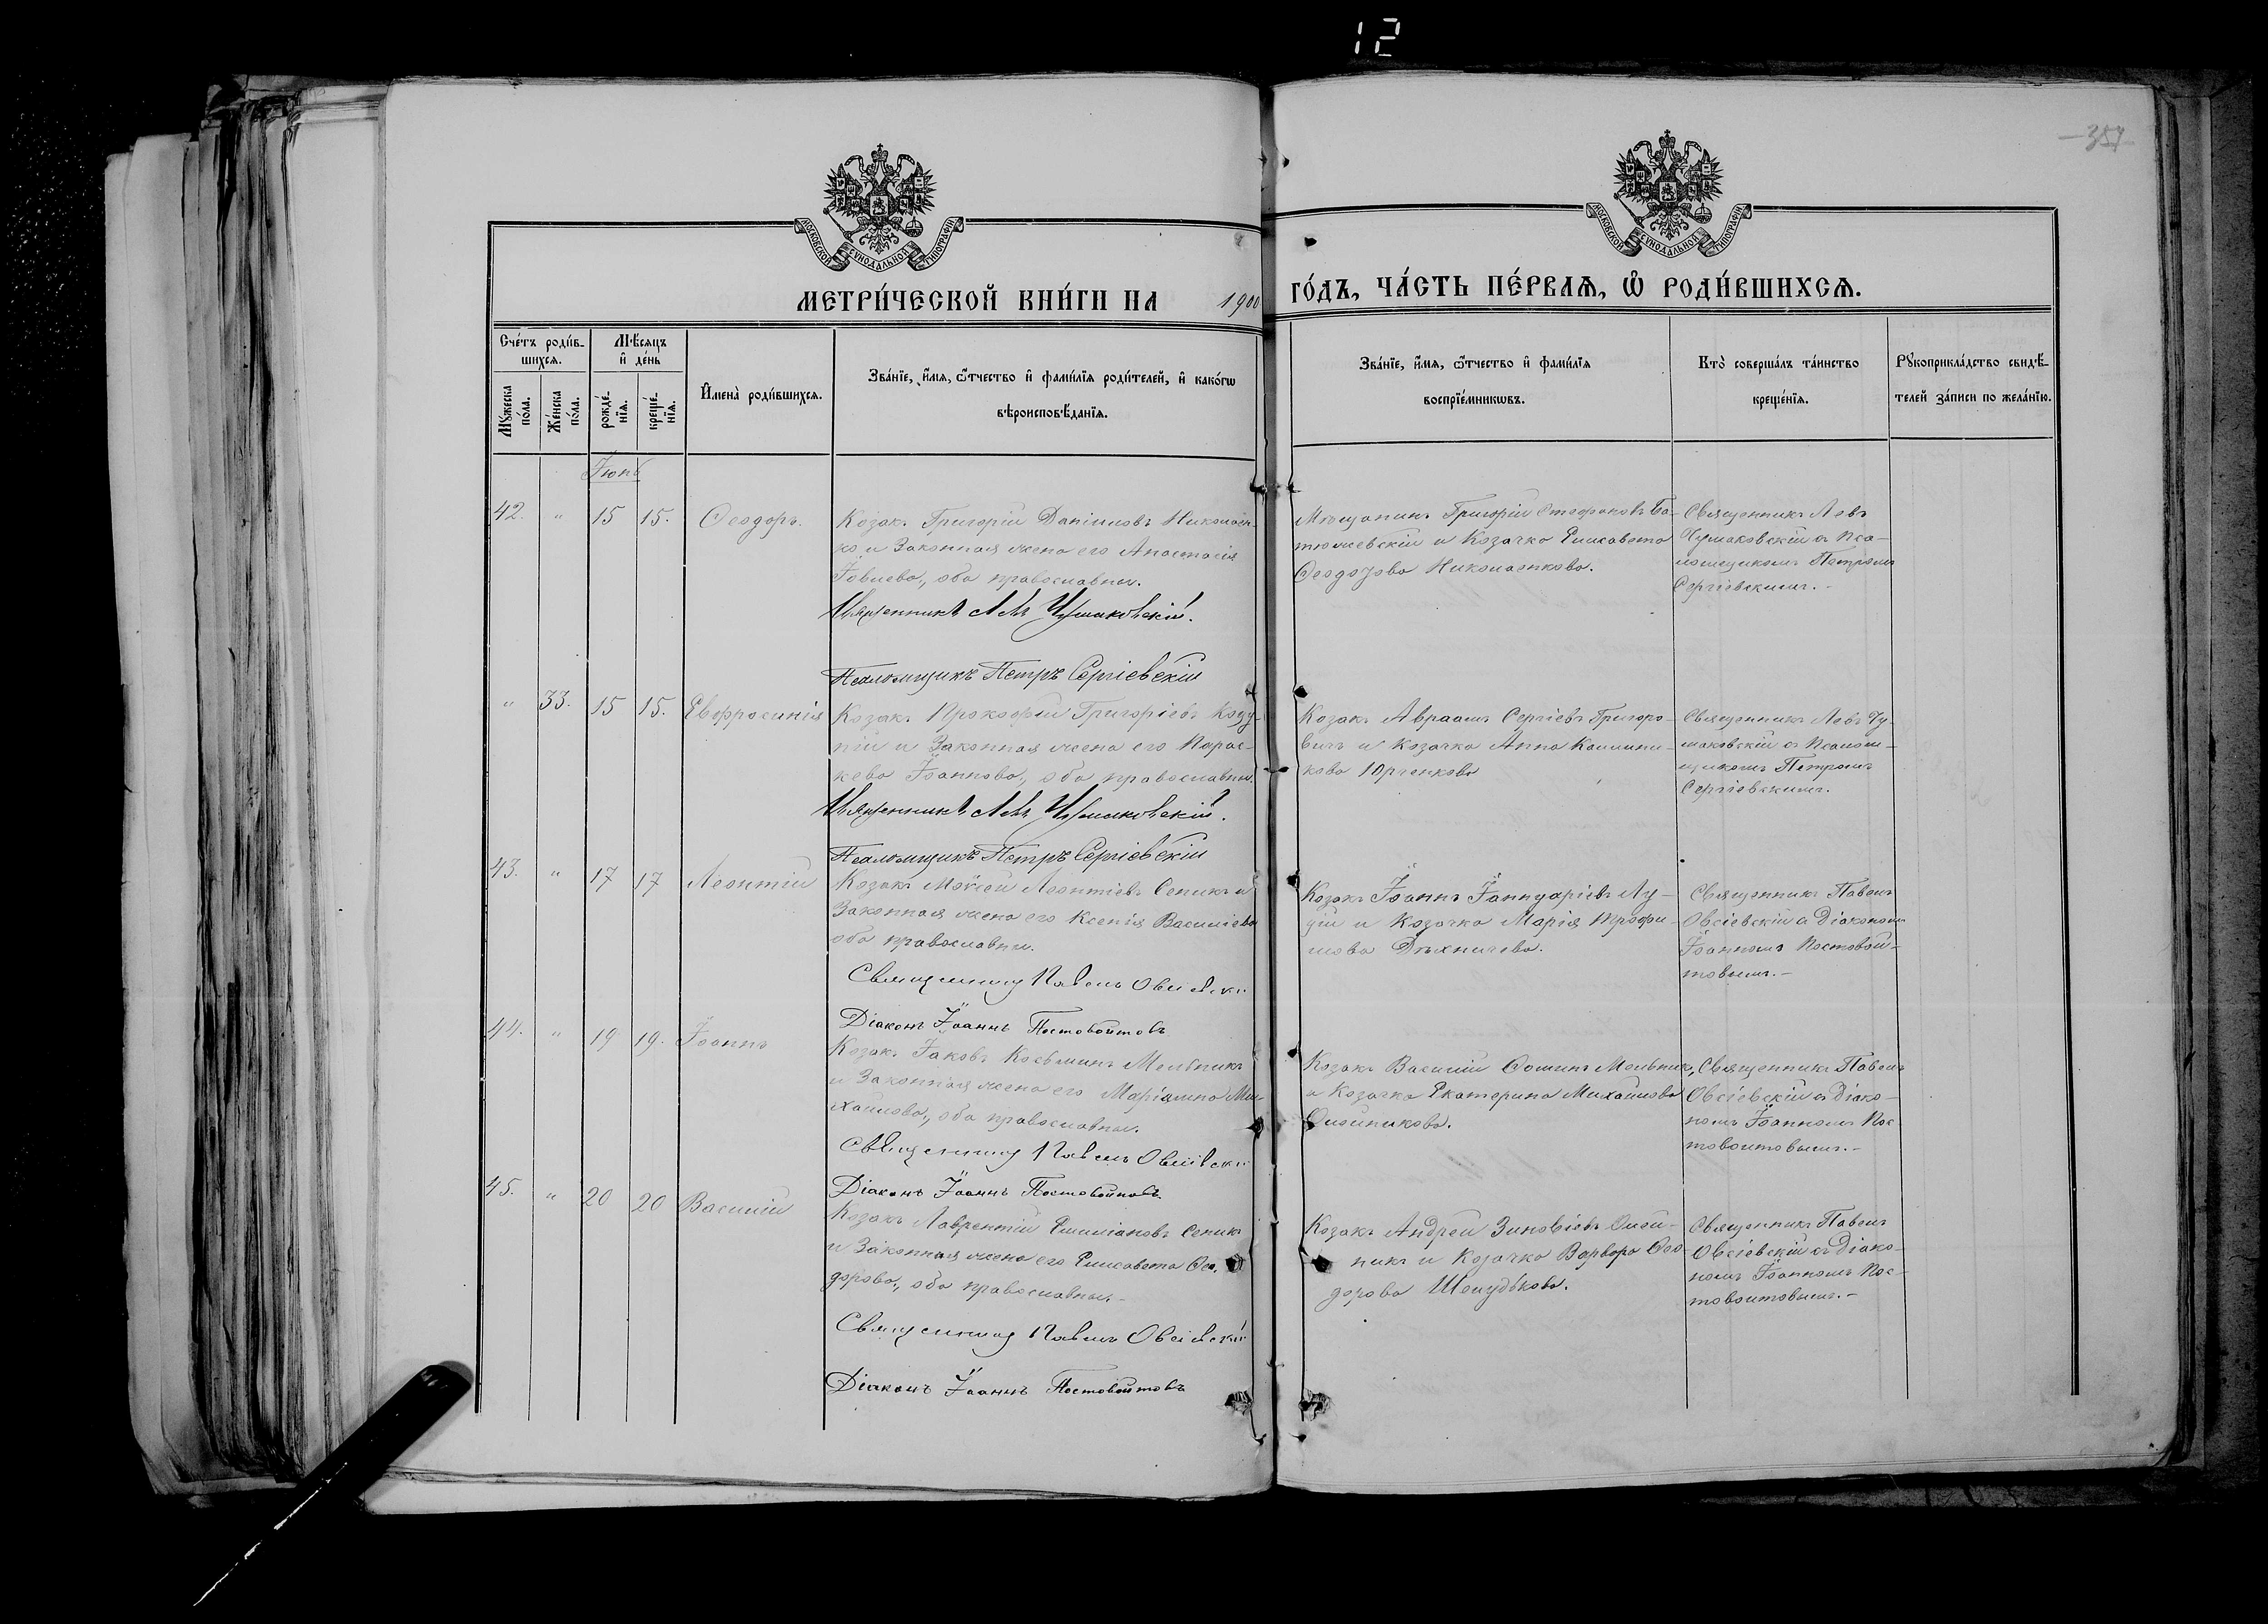 12
357
МОСКОВСКОЙ СѴНОДАЛЬНОЙ ТИПОГРАФІИ
МОСКОВСКОЙ СѴНОДАЛЬНОЙ ТИПОГРАФІИ
МЕТРИ́ЧЕСКОЙ КНИ́ГИ НА 1900 ГО́ДЪ, ЧА́СТЬ ПЕ́РВАѦ, Ѡ҆ РОДИ́ВШИХСѦ.
Сче́тъ роди́в-
шихсѧ.
Мꙋ́жеска по́ла.
Же́нска по́ла.
Мѣ́сѧцъ
и҆ де́нь
рожде́-нїѧ.
креще́-нїѧ.
И҆мена̀ роди́вшихсѧ.
Зва́нїе, и҆́мѧ, ѻ҆́тчество и҆ фами́лїѧ роди́телей, и҆ како́гѡ
вѣроисповѣ́данїѧ.
Зва́нїе, и҆́мѧ, ѻ҆́тчество и҆ фами́лїѧ
воспрїе́мникѡвъ.
Кто̀ соверша́лъ та́инство
креще́нїѧ.
Рꙋкоприкла́дство свидѣ́-
телей за́писи по жела́нїю.
Іюнь
42. " 15 15. Ѳеодоръ.
Козакъ Григорій Даніиловъ Николаен-
ко и Законная жена его Анастасія
Іовлева, оба православны.
Священникъ Левъ Чумаковскій.
Псаломщикъ Петръ Сергіевскій
Мѣщанинъ Григорій Стефановъ Ба-
тюжевскій и Козачка Елисавета
Ѳеодорова Николаенкова.
Священникъ Левъ
Чумаковскій съ Пса-
ломщикомъ Петромъ
Сергіевскимъ.-
" 33. 15 15. Евфросинія
Козакъ Прокофій Григоріевъ
и Законная жена его Парас-
кева Іоаннова, оба православны.
Священникъ Левъ Чумаковскій.
Псаломщикъ Петръ Сергіевскій
Козакъ Авраамъ Сергіевъ Григоро-
вичъ и Козачка Анна Каллини-
кова Юрченкова
Священникъ Левъ Чу-
маковскій съ Псалом-
щикомъ Петромъ
Сергіевскимъ.
43. " 17 17 Леонтій
Козакъ Моѵсей Леонтіевъ Сеникъ и
Законная жена его Ксенія Василіева
оба православны.
Священникъ Павелъ Овсіевскій
Діаконъ Іоаннъ Постовойтовъ
Козакъ Іоаннъ Іаннуаріевъ Лу-
цій и Козачка Марія Трофи-
мова
Священникъ Павелъ
Овсіевскій съ Діакономъ
Іоанномъ Постовой-
товымъ.-
44. " 19 19. Іоаннъ
Козакъ Іаковъ Косьминъ Мельникъ
и Законная жена его Маріамна Ми-
хайлова, оба православны.
Священникъ Павелъ Овсіевскій
Діаконъ Іоаннъ Постовойтовъ.
Козакъ Василій Ѳоминъ Мельникъ,
и Козачка Екатерина Михайлова
Олійникова.
Священникъ Павелъ
Овсіевскій съ Діако-
номъ Іоанномъ Пос
товойтовымъ.-
45. " 20 20 Василій
Козакъ Лаврентій Емиліановъ Сеникъ
и Законная жена его Елисавета Ѳео-
дорова, оба православны.-
Священникъ Павелъ Овсіевскій
Діаконъ Іоаннъ Постовойтовъ
Козакъ Андрей Зиновіевъ Олей-
никъ и Козачка Варвара Ѳео-
дорова Шолудькова.
Священникъ Павелъ
Овсіевскій съ Діако-
номъ Іоанномъ Пос-
товойтовымъ.-